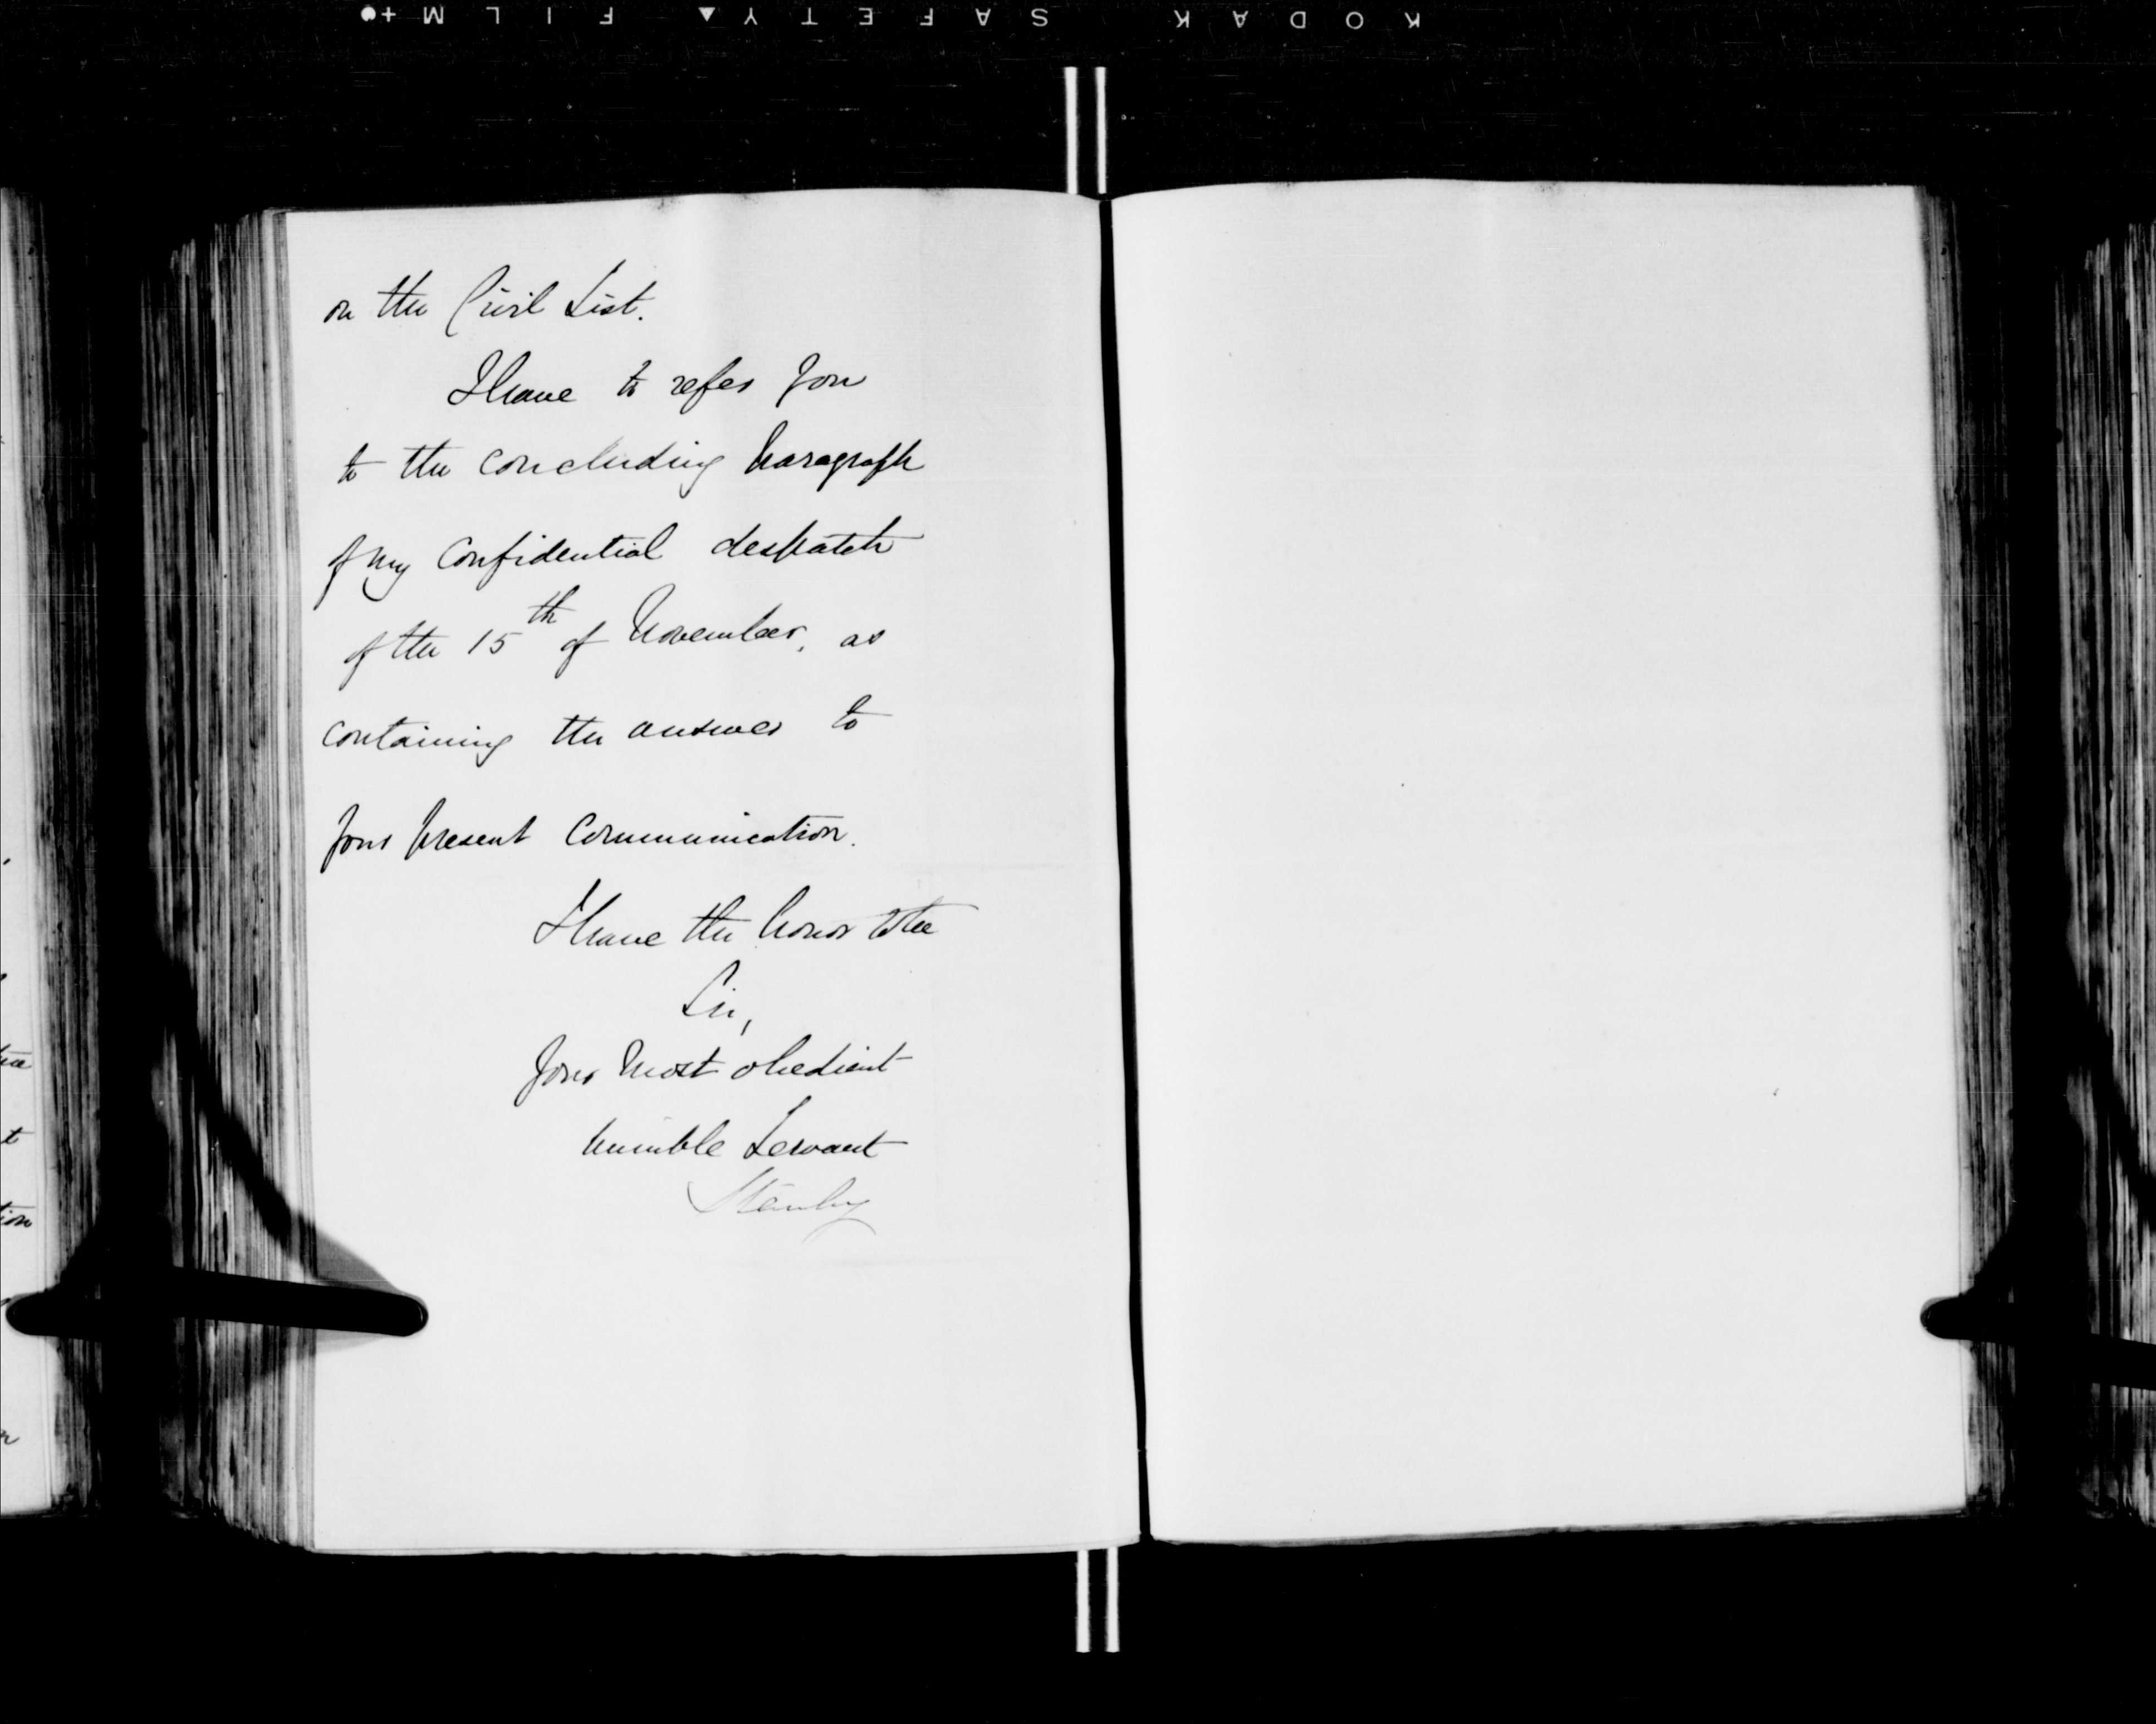 KODAK SAFETY▲ FILM+●
on the Civil List.
I have to refer You
to the concluding Paragraph
of my Confidential despatch
of the 15th of November, as
containing the answer to
Your present Communication.
I have the honor to be
Sir,
Your Most obedient
humble Servant
Stanley